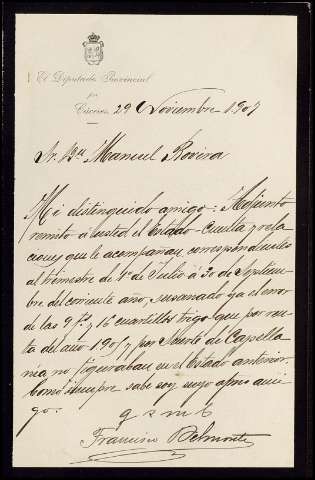 El Diputado Provincial
por
Cáceres, 29 Noviembre 1907
Sr. Dn Manuel Rovira
Mi distinguido amigo: Adjunto
remito á usted el Estado-Cuenta y rela
ciones que le acompañan, correspondientes
al trimestre de 1º de Julio á 30 de Septiem
bre del corriente año, subsanado ya el error
de las 9 fs. y 16 cuartillos trigo que por ren
ta del año 1907 y por de Capella
nía no figuraban en el Estado anterior.
Como siempre sabe soy suyo aftmo ami
go.
q s m b
Francisco Belmonte